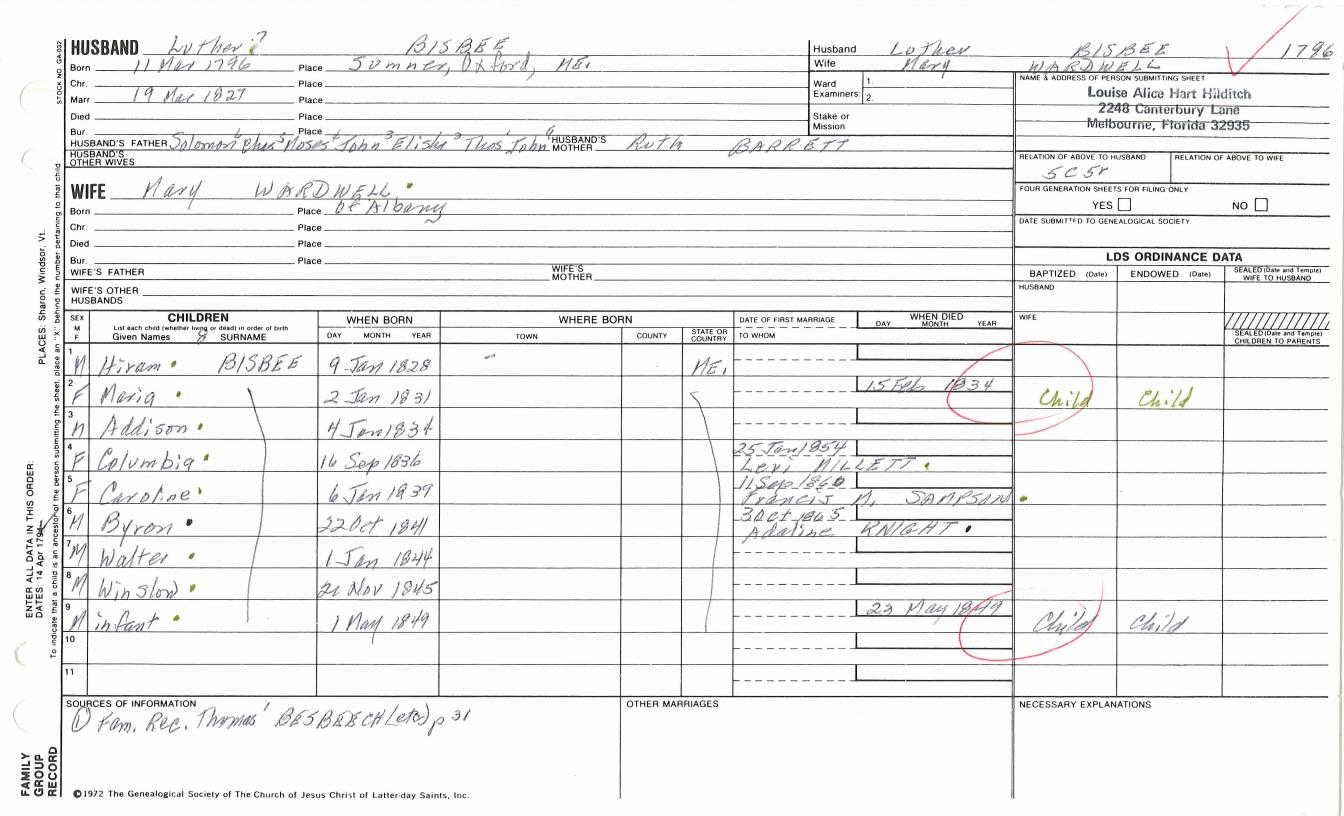 HUSBAND Luther 7 BISBEE
Born 11 Mar 1796 Place Sumner, Oxford, ME.
Chr. Place
Marr 19 Mar 1827 Place
Died Place
Bur. Place
HUSBAND'S FATHER Solomon 6 Chas 5 Moses 4 John 3 Elisha 2 Thos 1 John HUSBAND'S MOTHER Ruth BARRETT
HUSBAND'S OTHER WIVES
WIFE Mary WARDWELL
Born Place of Albany
Chr. Place
Died Place
Bur. Place
WIFE'S FATHER WIFE'S MOTHER
WIFE'S OTHER HUSBANDS
Husband Luther BISBEE 1796
Wife Mary WARDWELL
Ward 1.
Examiners: 2.
Stake or Mission
NAME & ADDRESS OF PERSON SUBMITTING SHEET
Louise Alice Hart Hilditch
2248 Canterbury Lane
Melbourne, Florida 32935
RELATION OF ABOVE TO HUSBAND RELATION OF ABOVE TO WIFE
5C 5r
FOUR GENERATION SHEETS FOR FILING ONLY
YES NO
DATE SUBMITTED TO GENEALOGICAL SOCIETY
LDS ORDINANCE DATA
BAPTIZED (Date) ENDOWED (Date) SEALED (Date and Temple) WIFE TO HUSBAND
HUSBAND
WIFE
SEALED (Date and Temple) CHILDREN TO PARENTS
SEX M F
CHILDREN
List each child (whether living or dead) in order of birth
Given Names 8 SURNAME
WHEN BORN
DAY MONTH YEAR
WHERE BORN
TOWN COUNTY STATE OR COUNTRY
DATE OF FIRST MARRIAGE
TO WHOM
WHEN DIED
DAY MONTH YEAR
1 M Hiram BISBEE 9 Jan 1828 ME.
2 F Maria 2 Jan 1831 15 Feb 1834 Child Child
3 M Addison 4 Jan 1834
4 F Columbia 16 Sep 1836 25 Jan 1854 Levi MILLETT
5 F Caroline 6 Jan 1839 11 Sep 1860 Francis M. SAMPSON
6 M Byron 22 Oct 1841 3 Oct 1865 Adaline KNIGHT
7 M Walter 1 Jan 1844
8 M Winslow 21 Nov 1845
9 M infant 1 May 1849 23 May 1849 Child Child
10
11
SOURCES OF INFORMATION
① Fam. Rec. Thomas' BESBEECH (etc) p 31
OTHER MARRIAGES
NECESSARY EXPLANATIONS
©1972 The Genealogical Society of The Church of Jesus Christ of Latter-day Saints, Inc.
STOCK NO. GA-032
PLACES: Sharon, Windsor, Vt.
ENTER ALL DATA IN THIS ORDER:
DATES: 14 Apr 1794
To indicate that a child is an ancestor of the person submitting the sheet, place an "X" behind the number pertaining to that child
FAMILY GROUP RECORD